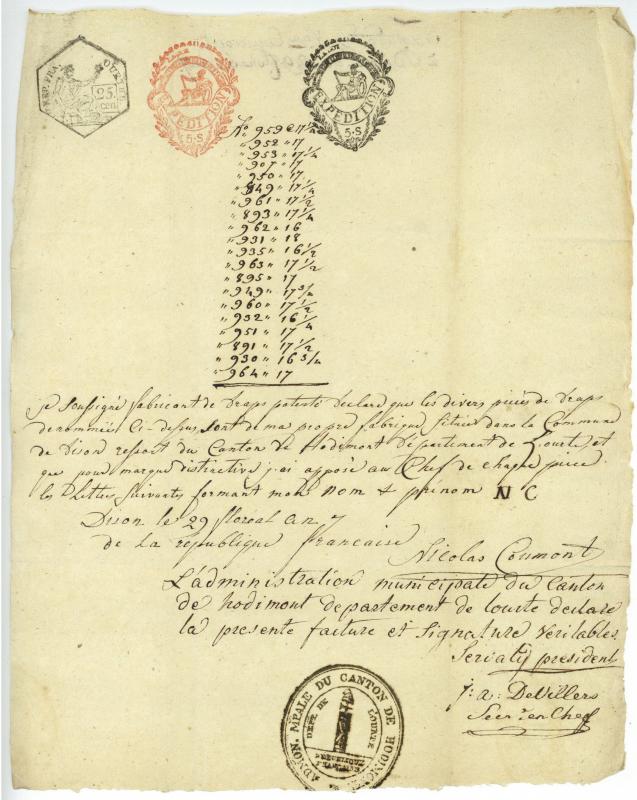 REP. FRA. OURTHE
25 cen.
EXPEDITION
5. S
EXPEDITION
5. S
No 959 e 17 1/4
" 952 " 17
" 953 " 17 1/4
" 907 " 17
" 950 " 17
" 849 " 17 1/4
" 961 " 17 1/2
" 893 " 17 1/4
" 962 " 16
" 931 " 18
" 935 " 16 1/2
" 963 " 17 1/2
" 895 " 17
" 949 " 17 3/4
" 960 " 17 1/2
" 932 " 16 1/2
" 951 " 17 1/4
" 891 " 17 1/2
" 930 " 16 3/4
" 964 " 17
je soussigné fabricant de draps patenté déclare que les divers pièces de draps
denommées Ci-dessus sont de ma propre fabrique située dans la Commune
de Dison ressort du Canton de Hodimont Département de Lourte, et
que pour marque distinctive j'ai apposé au Chef de chaque pièce
les Lettres suivants formant mon nom & prénom NC
Dison le 29 floreal an 7
de la république francaise
Nicolas Coumont
L'administration municipale du Canton
de hodimont departement de lourte declare
la presente facture et signature veritables
president
j: a: DeVillers
Secr. en Chef
ADMON. MPALE DU CANTON DE HODIMONT
DEPT. DE LOURTE
REPUBLIQUE FRANCAISE